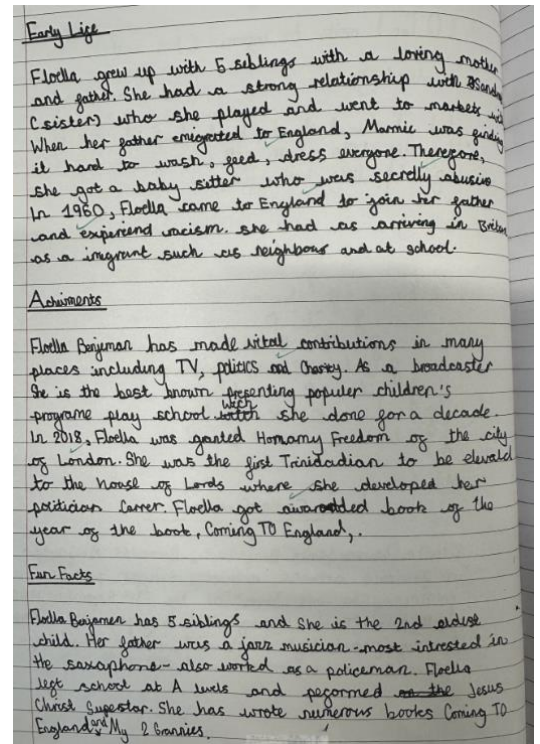 Early Life
Floella grew up with 5 siblings with a loving mother
and father. She had a strong relationship with Sandra
(sister) who she played and went to markets with
When her father emigrated to England, Marmie was finding
it hard to wash, feed, dress everyone. Therefore,
she got a baby sitter who was secretly abusive
In 1960, Floella came to England to join her father
and experiend racism. she had as arriving in Britain
as a imigrant such as neighbour and at school.
Achivments
Floella Benjeman has made vital contributions in many
places including TV, politics and Charity. As a broadcaster
She is the best known presenting populer children's
programe play school wich she done for a decade.
In 2018, Floella was granted Honamy Freedom of the city
of London. She was the first Trinidadian to be elevald
to the house of Lords where she developed her
politician Carrer. Floella got awarded book of the
year of the book, Coming TO England,.
Fun Facts
Floella Benjamen has 5 siblings and She is the 2nd eldest
child. Her father was a jazz musician-most intrested in
the saxaphone- also worked as a policeman. Floella
left school at A levels and peformed Jesus
Christ Supestar. She has wrote numerous books Coming TO
England and My 2 Grannies.